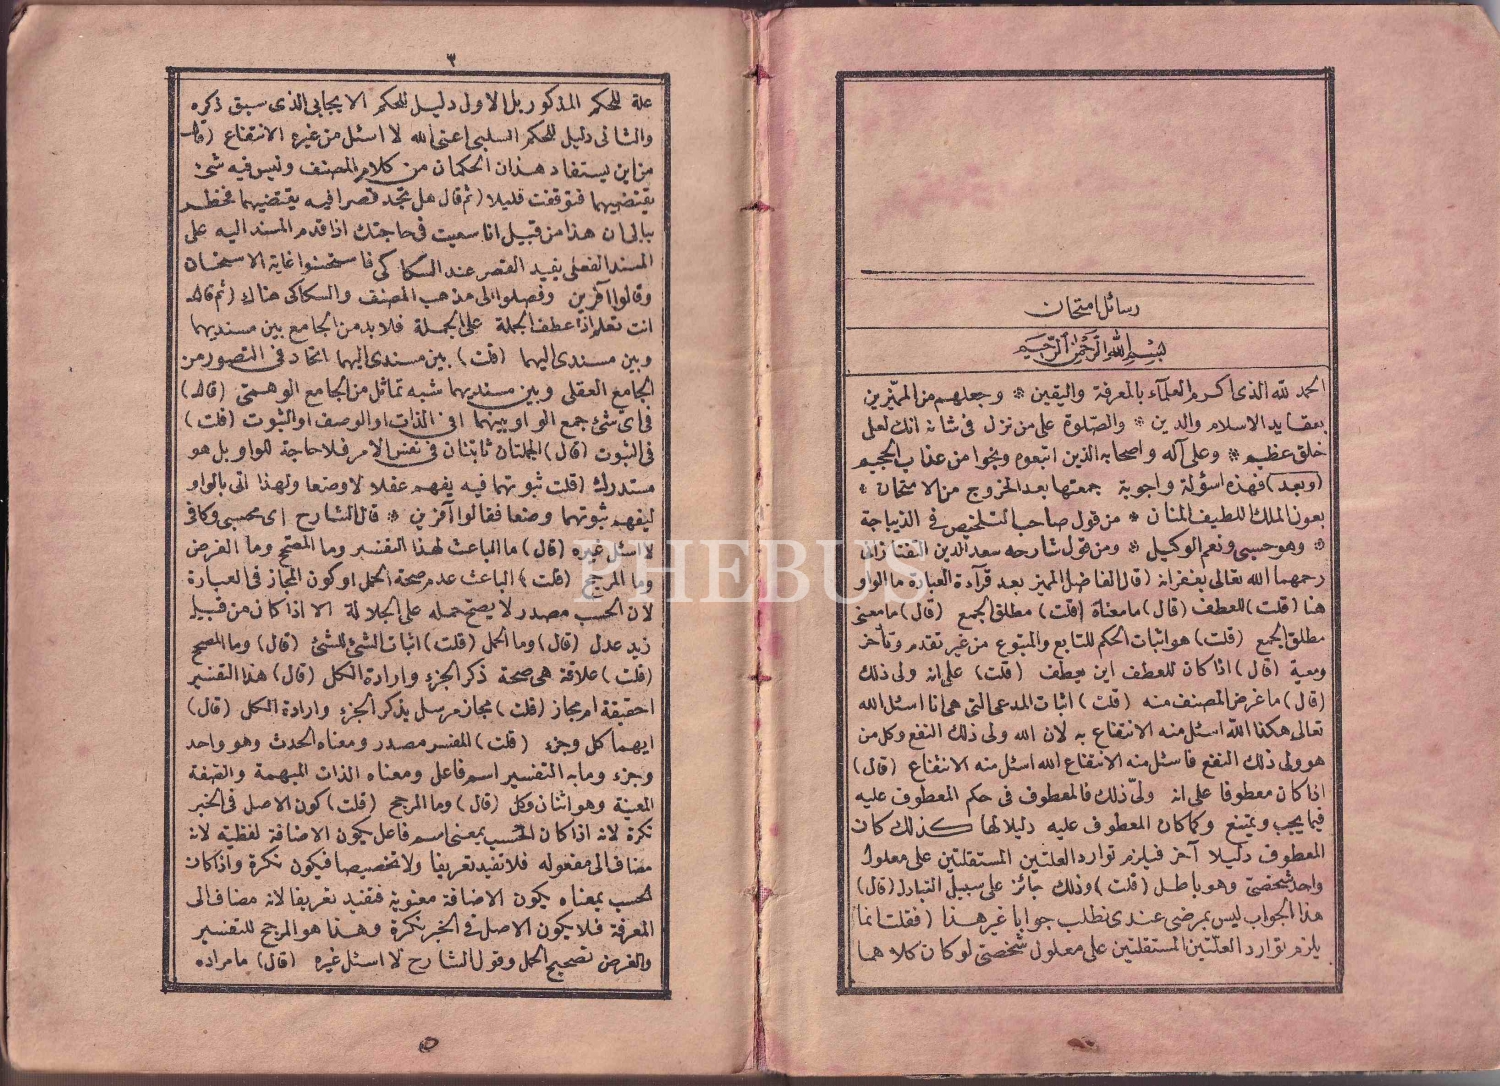 رسائل امتحان
بسم الله الرحمن الرحيم
الحمد لله الذى اكرم العلمآء بالمعرفة واليقين * وجعلهم من المميّزين
بعقايد الاسلام والدين * والصّلوة على من نزل فى شانه انك لعلى
خلق عظيم * وعلى آله واصحابه الذين اتبعوه ونجوا من عذاب الجحيم
(وبعد) فهذه اسؤلة واجوبة جمعتها بعد الخروج من الامتحان *
بعون الملك اللطيف المنان * من قول صاحب التلخيص فى الديباجة
* وهو حسبى ونعم الوكيل * ومن قول شارحه سعد الدين التفتازانى
رحمهما الله تعالى بغفرانه (قال الفاضل المميز بعد قرآءة العبارة ما الواو
هنا (قلت) للعطف (قال) ما معناه (قلت) مطلق الجمع (قال) ما معنى
مطلق الجمع (قلت) هو اثبات الحكم للتابع والمتبوع من غير تقدم وتأخر
ومعية (قال) اذا كان للعطف اين يعطف (قلت) على انه ولى ذلك
(قال) ما غرض المصنف منه (قلت) اثبات المدعى التى هى انا اسئل الله
تعالى هكذا الله اسئل منه الانتفاع به لان الله ولى ذلك النفع وكل من
هو ولى ذلك النفع فاسئل منه الانتفاع الله اسئل منه الانتفاع (قال)
اذا كان معطوفا على انه ولىّ ذلك فالمعطوف فى حكم المعطوف عليه
فيما يجب ويمتنع وكما كان المعطوف عليه دليلا لها كذلك كان
المعطوف دليلا آخر فيلزم توارد العلتين المستقلتين على معلول
واحد شخصىّ وهو باطل (قلت) وذلك جائز على سبيل التبادل (قال)
هذا الجواب ليس بمرضى عندى نطلب جوابا غير هذا (فقلت انما
يلزم توارد العلّتين المستقلتين على معلول شخصىّ لو كان كلاهما
٣
علة للحكم المذكور بل الاول دليل للحكم الايجابى الذى سبق ذكره
والثانى دليل للحكم السلبى اعنى الله لا اسئل من غيره الانتفاع (قال
من اين يستفاد هذان الحكمان من كلام المصنف وليس فيه شئ
يقتضيهما فتوقفت قليلا (ثم قال هل تجد قصرا فيه يقتضيهما فخطر
ببالى ان هذا من قبيل انا سعيت فى حاجتك اذا قدم المسند اليه على
المسند الفعلى يفيد القصر عند السكاكى فاستحسنوا غاية الاستحسان
وقالوا آفرين وفصلوا الى مذهب المصنف والسكاكى هناك (ثم قال
انت تعلم اذا عطف الجملة على الجملة فلابد من الجامع بين مسنديهما
وبين مسندى اليهما (قلت) بين مسندى اليهما اتحاد فى التصور من
الجامع العقلى وبين مسنديهما شبه تماثل من الجامع الوهمىّ (قال)
فى اى شئ جمع الواو بينهما افى الذات او الوصف او الثبوت (قلت)
فى الثبوت (قال) الجملتان ثابتتان فى نفس الامر فلا حاجة للواو بل هو
مستدرك (قلت ثبوتهما فيه يفهم عقلا لا وضعا ولهذا اتى بالواو
ليفهم ثبوتهما وضعا فقالوا آفرين * قال الشارح اى محسبى وكافى
لا اسئل غيره (قال) ما الباعث لهذا التفسير وما المصحح وما الغرض
وما المرجح (قلت) الباعث عدم صحة الحمل او كون المجاز فى العبارة
لان الحسب مصدر لا يصحّ حمله على الجلالة الا اذا كان من قبيل
زيد عدل (قال) وما الحمل (قلت) اثبات الشئ للشئ (قال) وما المصحح
(قلت) علاقة هى صحة ذكر الجزء وارادة الكل (قال) هذا التفسير
احقيقة ام مجاز (قلت) مجاز مرسل بذكر الجزء وارادة الكل (قال)
ايهما كل وجزء (قلت) المفسر مصدر ومعناه الحدث وهو واحد
وجزء وما به التفسير اسم فاعل ومعناه الذات المبهمة والصفة
المعينة وهو اثنان وكل (قال) وما المرجح (قلت) كون الاصل فى الخبر
نكرة لانه اذا كان الحسب بمعنى اسم فاعل يكون الاضافة لفظية لانه
مضاف الى مفعوله فلا تفيد تعريفا ولا تخصيصا فيكون نكرة واذا كان
الحسب بمعناه يكون الاضافة معنوية فتفيد تعريفا لانه مضاف الى
المعرفة فلا يكون الاصل فى الخبر نكرة وهذا هو المرجح للتفسير
والغرض تصحيح الحمل وقول الشارح لا اسئل غيره (قال) ما مراده
PHEBUS